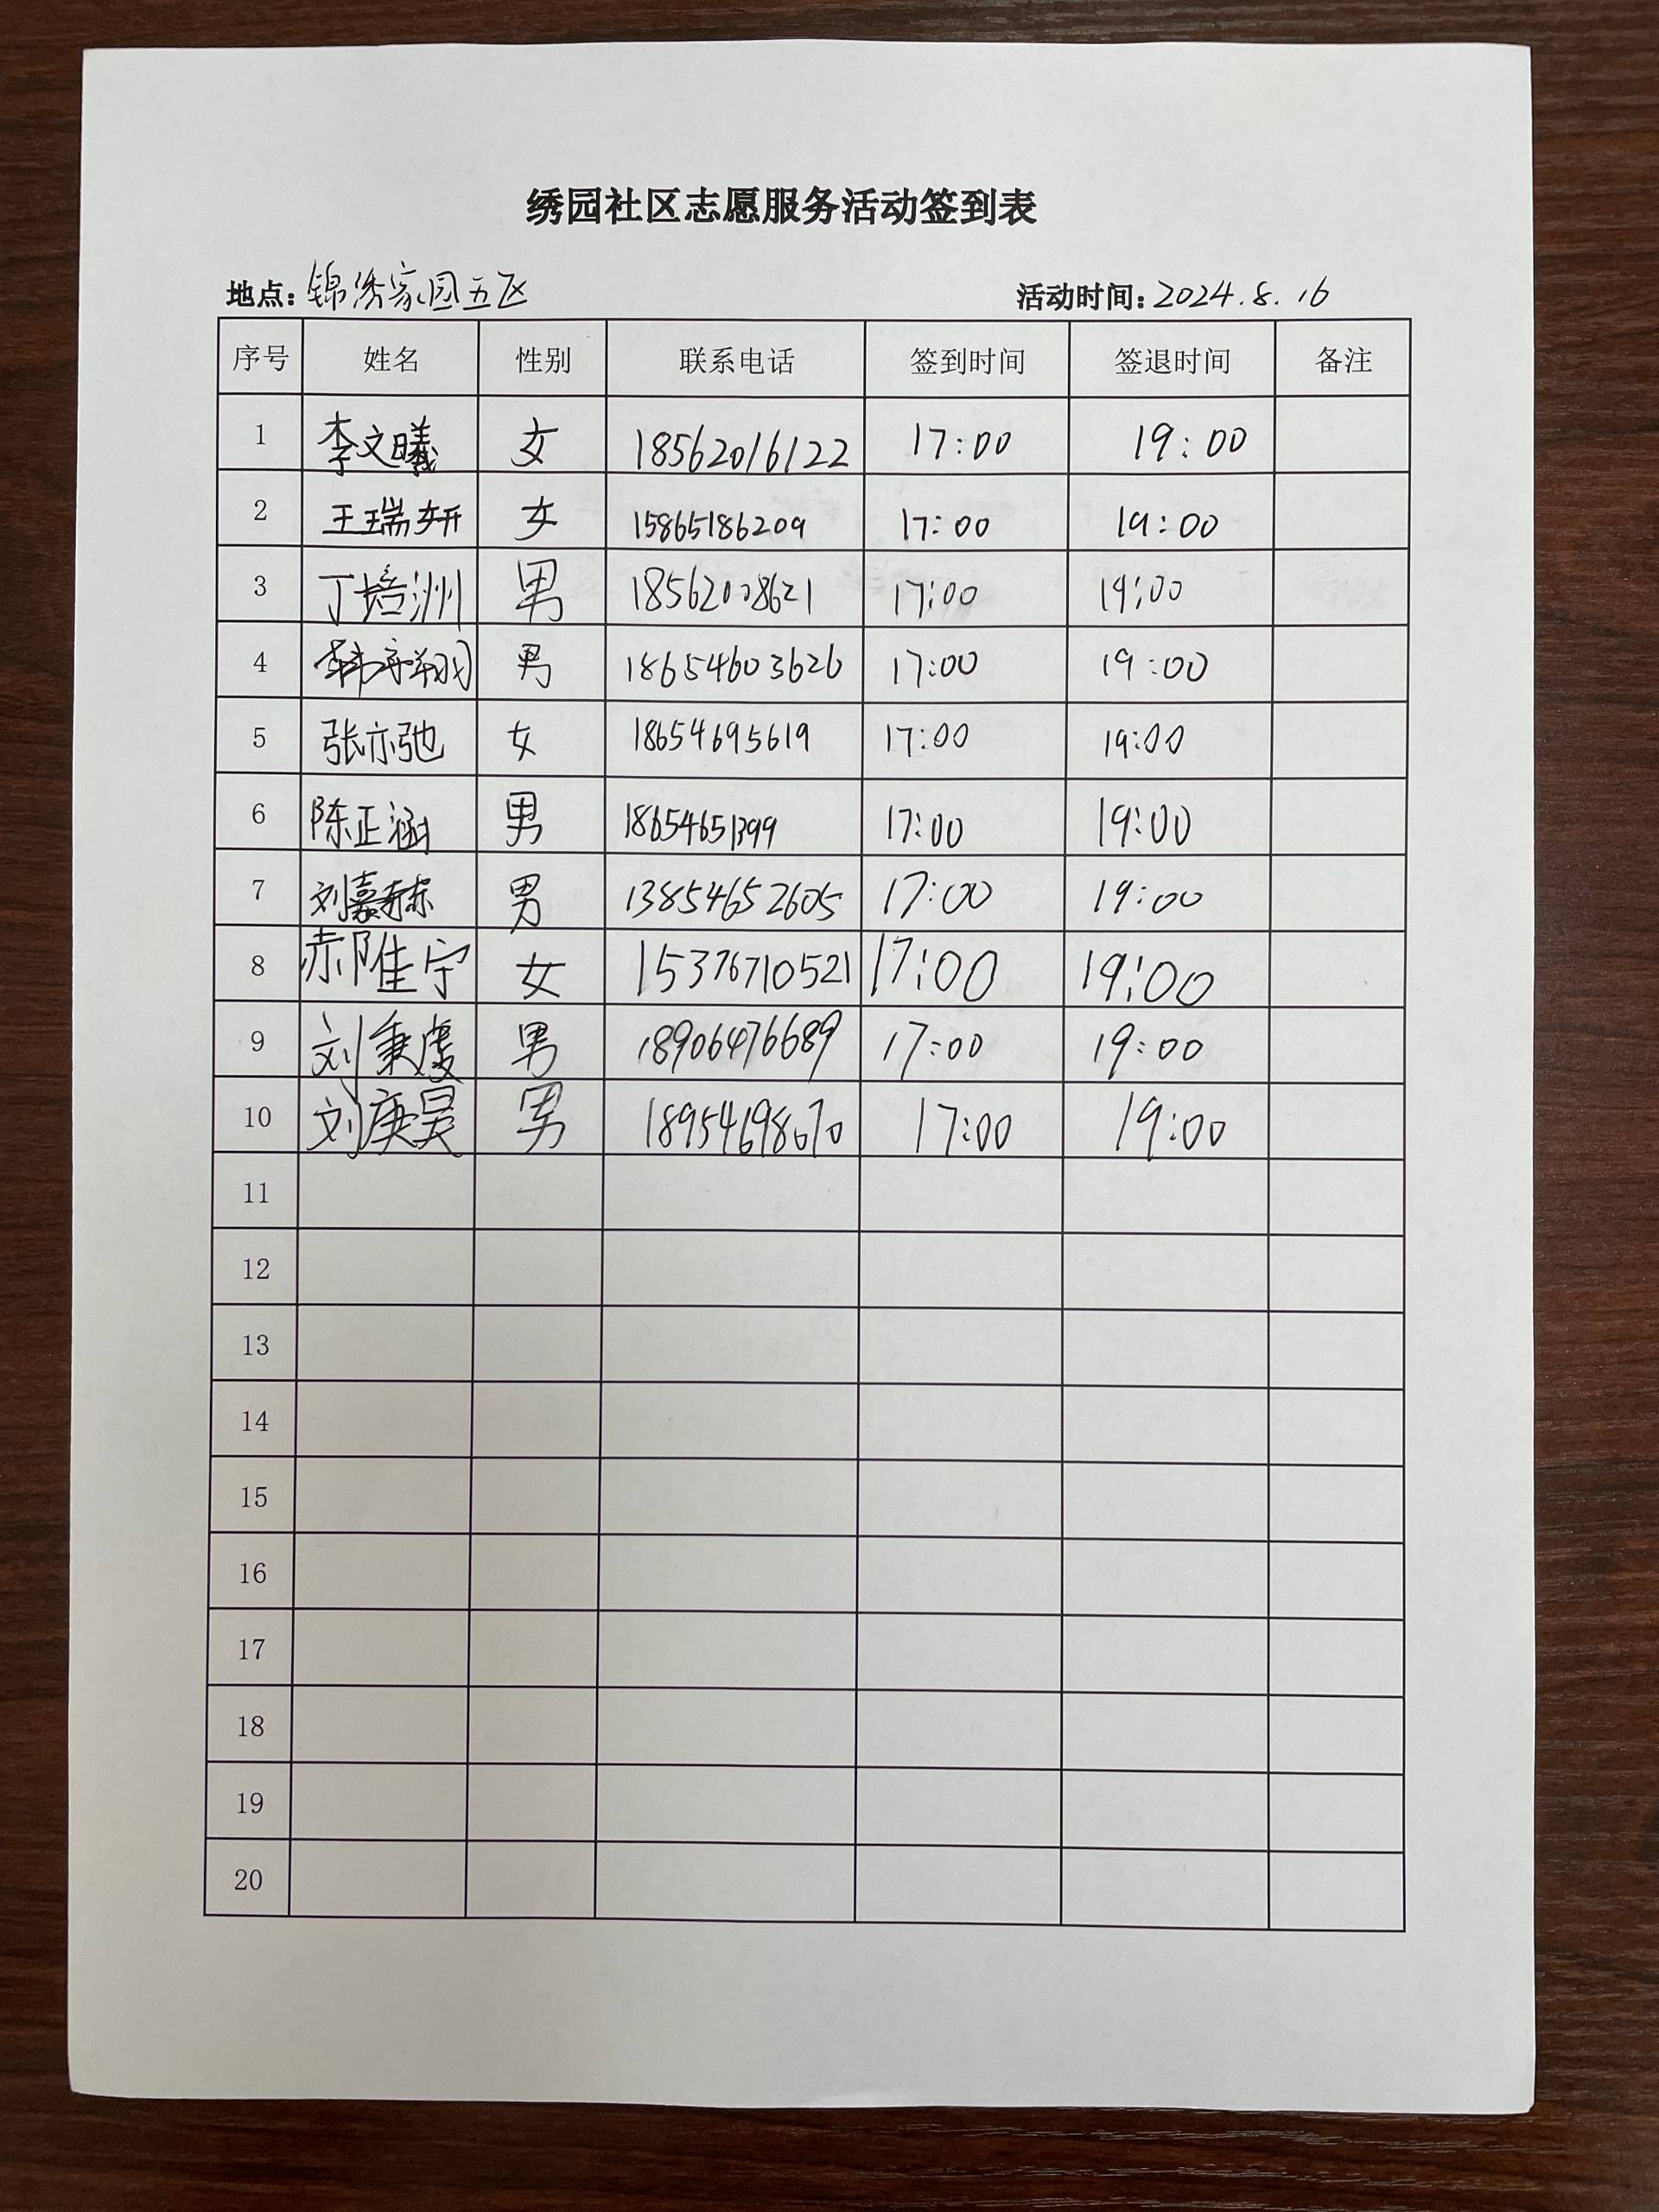 绣园社区志愿服务活动签到表
地点：锦绣家园五区 活动时间：2024.8.16
序号 姓名 性别 联系电话 签到时间 签退时间 备注
1 李文曦 女 18562016122 17:00 19:00
2 王瑞妍 女 15865186209 17:00 19:00
3 丁培洲 男 18562008621 17:00 19:00
4 韩宇翔 男 18654603626 17:00 19:00
5 张亦弛 女 18654695619 17:00 19:00
6 陈正涵 男 18654651399 17:00 19:00
7 刘嘉赫 男 13854652605 17:00 19:00
8 郝佳宁 女 15376710521 17:00 19:00
9 刘秉虔 男 18906476689 17:00 19:00
10 刘庚昊 男 18954698670 17:00 19:00
11
12
13
14
15
16
17
18
19
20